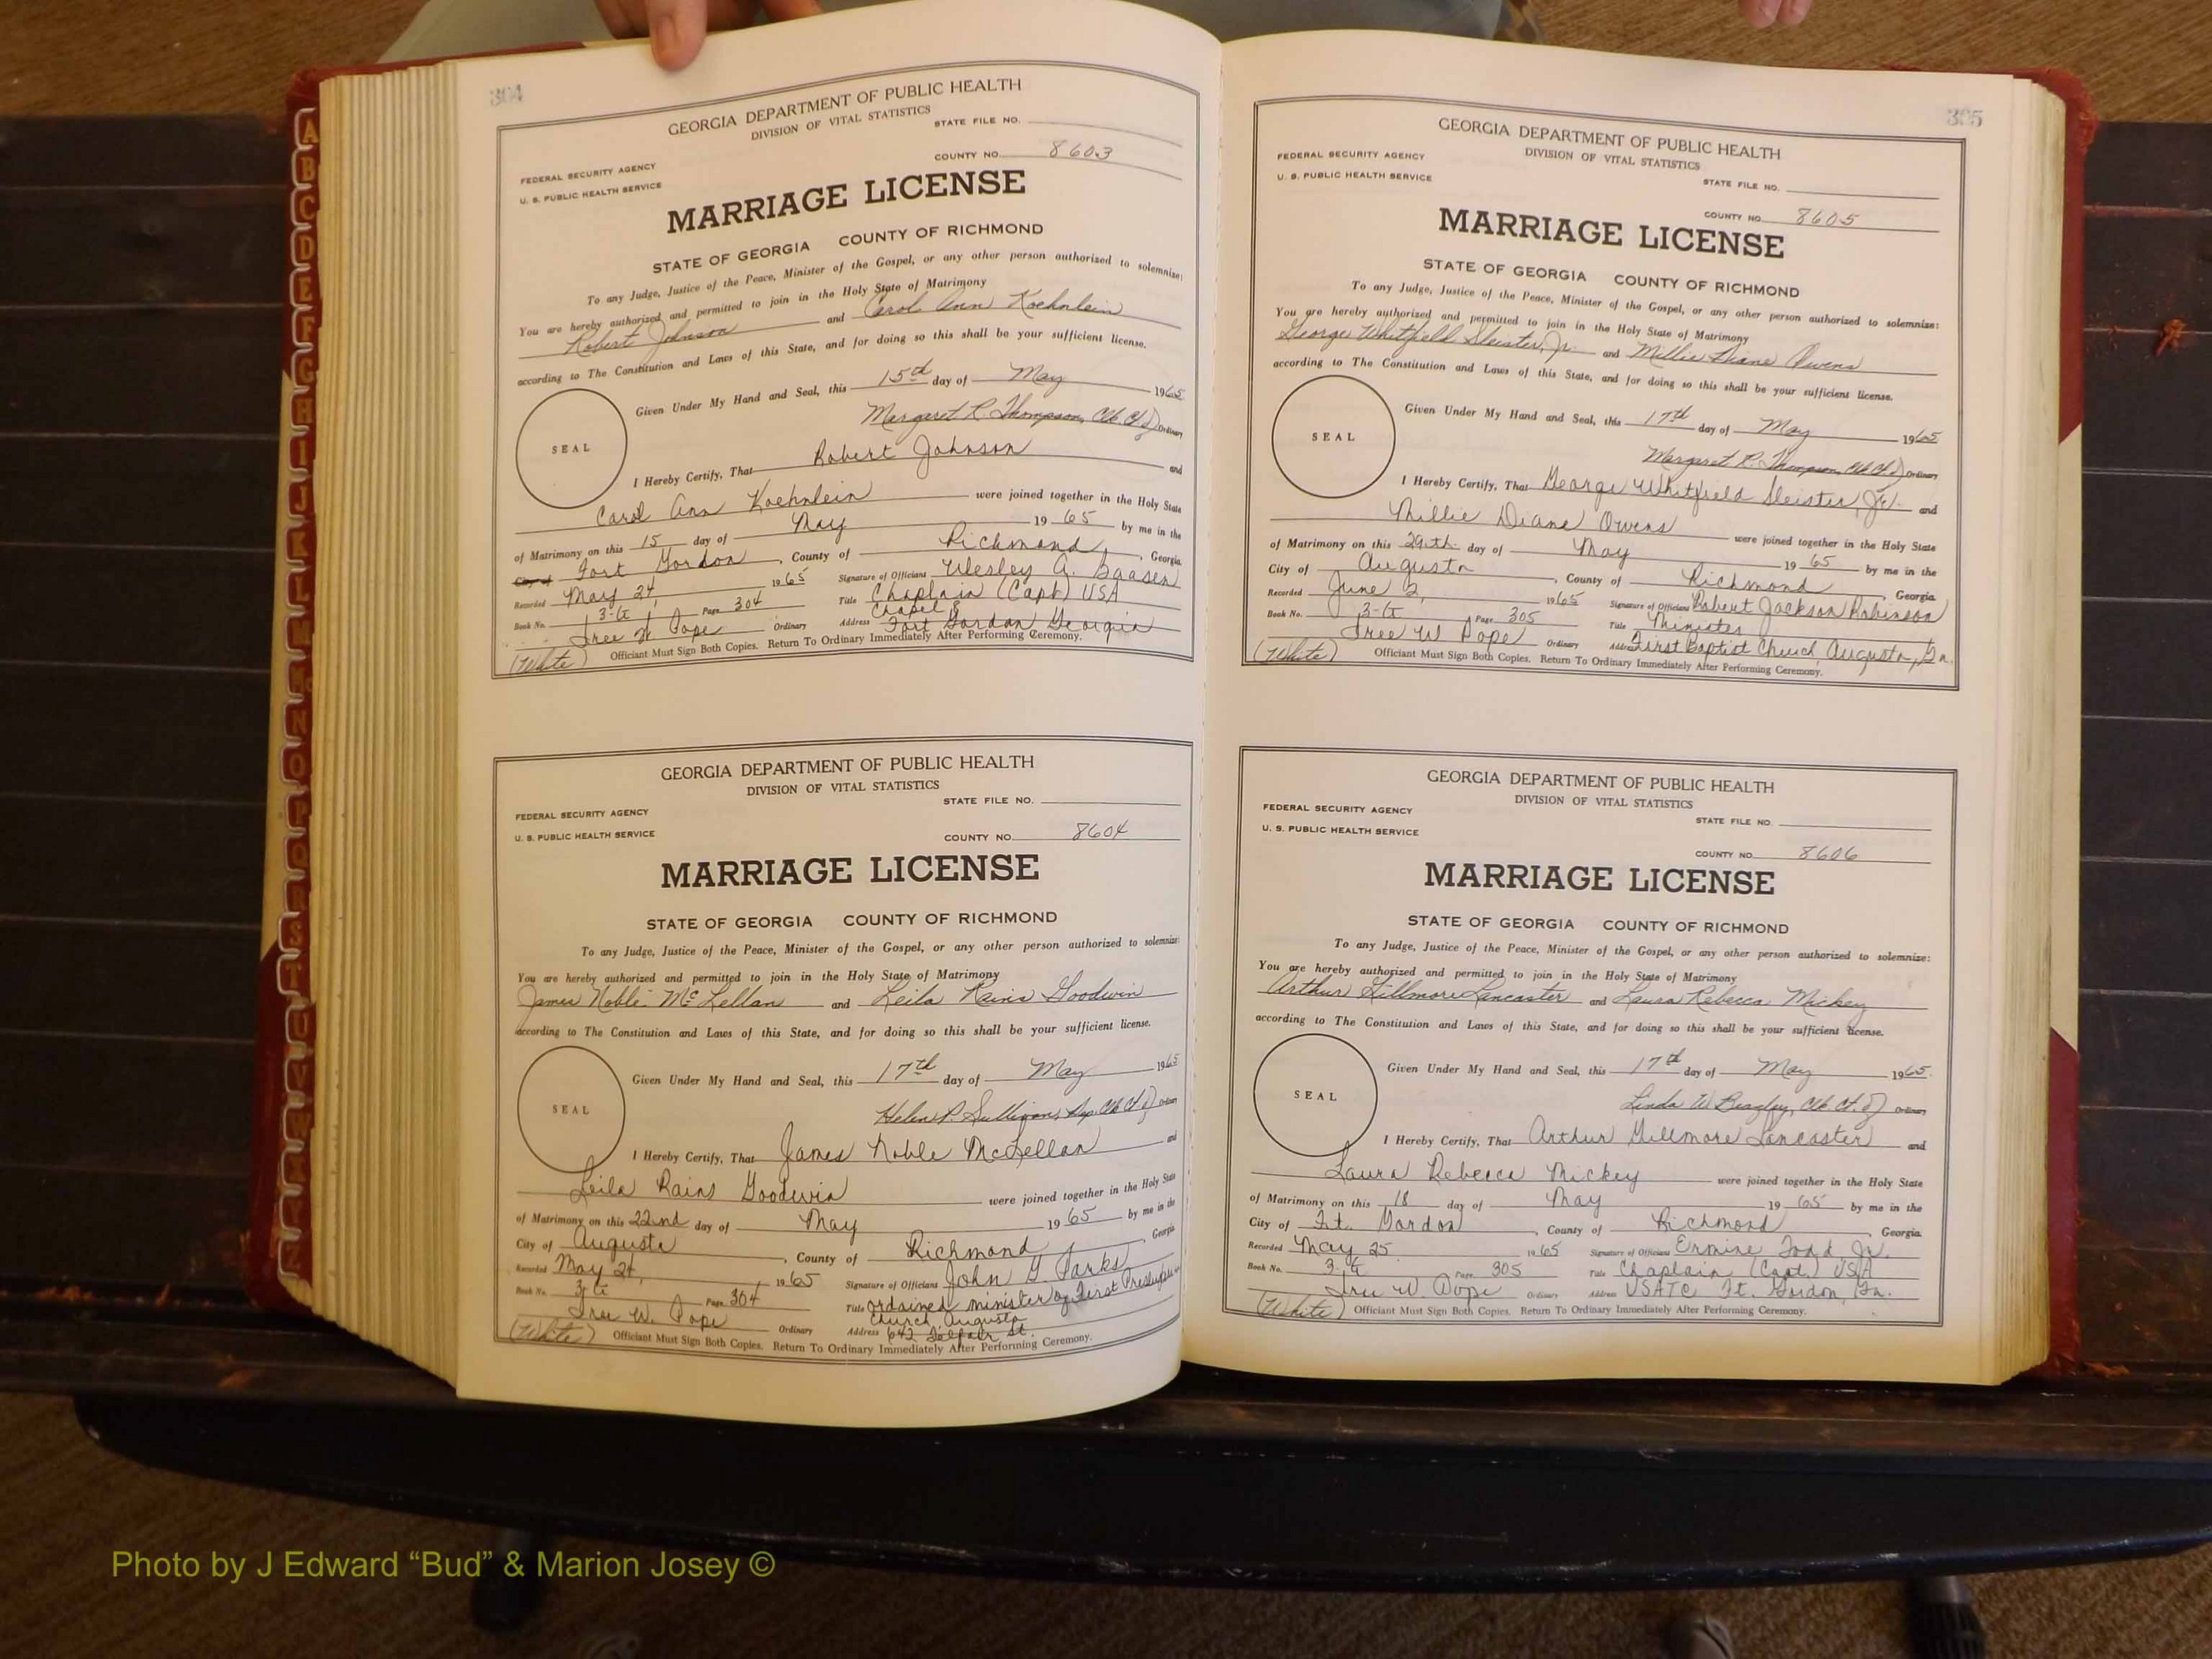 304
GEORGIA DEPARTMENT OF PUBLIC HEALTH
DIVISION OF VITAL STATISTICS
STATE FILE NO.
FEDERAL SECURITY AGENCY
COUNTY NO. 8603
U. S. PUBLIC HEALTH SERVICE
MARRIAGE LICENSE
STATE OF GEORGIA COUNTY OF RICHMOND
To any Judge, Justice of the Peace, Minister of the Gospel, or any other person authorized to solemnize:
You are hereby authorized and permitted to join in the Holy State of Matrimony
Robert Johnson and Carol Ann Koehnlein
according to The Constitution and Laws of this State, and for doing so this shall be your sufficient license.
Given Under My Hand and Seal, this 15th day of May 1965
Margaret R. Thompson, Clk. Ct. of Ordinary
SEAL
I Hereby Certify, That Robert Johnson and
Carol Ann Koehnlein were joined together in the Holy State
of Matrimony on this 15 day of May 19 65 by me in the
City of Fort Gordon, County of Richmond, Georgia.
Recorded May 24, 1965 Signature of Officiant Wesley G. Baasen
Book No. 3-G Page 304 Title Chaplain (Capt) USA
Chapel 8
Tree W. Pope Ordinary Address Fort Gordon Georgia
(White) Officiant Must Sign Both Copies. Return To Ordinary Immediately After Performing Ceremony.
GEORGIA DEPARTMENT OF PUBLIC HEALTH
DIVISION OF VITAL STATISTICS
STATE FILE NO.
FEDERAL SECURITY AGENCY
U. S. PUBLIC HEALTH SERVICE COUNTY NO. 8604
MARRIAGE LICENSE
STATE OF GEORGIA COUNTY OF RICHMOND
To any Judge, Justice of the Peace, Minister of the Gospel, or any other person authorized to solemnize:
You are hereby authorized and permitted to join in the Holy State of Matrimony
James Noble McLellan and Leila Rains Goodwin
according to The Constitution and Laws of this State, and for doing so this shall be your sufficient license.
Given Under My Hand and Seal, this 17th day of May 1965
Helen P. Sullivan, Dep. Clk. Ct. of Ordinary
SEAL
I Hereby Certify, That James Noble McLellan and
Leila Rains Goodwin were joined together in the Holy State
of Matrimony on this 22nd day of May 19 65 by me in the
City of Augusta, County of Richmond, Georgia
Recorded May 24, 1965 Signature of Officiant John G. Parks
Book No. 3-G Page 304 Title ordained minister of First Presbyterian
Church, Augusta
Tree W. Pope Ordinary Address 642 Telfair St.
(White) Officiant Must Sign Both Copies. Return To Ordinary Immediately After Performing Ceremony.
305
GEORGIA DEPARTMENT OF PUBLIC HEALTH
DIVISION OF VITAL STATISTICS
FEDERAL SECURITY AGENCY
U. S. PUBLIC HEALTH SERVICE
STATE FILE NO.
COUNTY NO. 8605
MARRIAGE LICENSE
STATE OF GEORGIA COUNTY OF RICHMOND
To any Judge, Justice of the Peace, Minister of the Gospel, or any other person authorized to solemnize:
You are hereby authorized and permitted to join in the Holy State of Matrimony
George Whitfield Sleister, Jr. and Millie Diane Owens
according to The Constitution and Laws of this State, and for doing so this shall be your sufficient license.
Given Under My Hand and Seal, this 17th day of May 1965
Margaret R. Thompson, Clk. Ct. of Ordinary
SEAL
I Hereby Certify, That George Whitfield Sleister, Jr. and
Millie Diane Owens were joined together in the Holy State
of Matrimony on this 29th. day of May 19 65 by me in the
City of Augusta, County of Richmond, Georgia.
Recorded June 2, 1965 Signature of Officiant Robert Jackson Robinson
Book No. 3-G Page 305 Title Minister
Tree W Pope Ordinary Address First Baptist Church, Augusta, Ga.
(White) Officiant Must Sign Both Copies. Return To Ordinary Immediately After Performing Ceremony.
GEORGIA DEPARTMENT OF PUBLIC HEALTH
DIVISION OF VITAL STATISTICS
FEDERAL SECURITY AGENCY
U. S. PUBLIC HEALTH SERVICE
STATE FILE NO.
COUNTY NO. 8606
MARRIAGE LICENSE
STATE OF GEORGIA COUNTY OF RICHMOND
To any Judge, Justice of the Peace, Minister of the Gospel, or any other person authorized to solemnize:
You are hereby authorized and permitted to join in the Holy State of Matrimony
Arthur Gillmore Lancaster and Laura Rebecca Mickey
according to The Constitution and Laws of this State, and for doing so this shall be your sufficient license.
Given Under My Hand and Seal, this 17th day of May 1965.
Linda W. Beazley, Clk. Ct. of Ordinary
SEAL
I Hereby Certify, That Arthur Gillmore Lancaster and
Laura Rebecca Mickey were joined together in the Holy State
of Matrimony on this 18 day of May 19 65 by me in the
City of Ft. Gordon, County of Richmond, Georgia.
Recorded May 25 1965 Signature of Officiant Ermine Todd, Jr.
Book No. 3-G Page 305 Title Chaplain (Capt.) USA
Tree W. Pope Ordinary Address USATC Ft. Gordon, Ga.
(White) Officiant Must Sign Both Copies. Return To Ordinary Immediately After Performing Ceremony.
A
B
C
D
E
F
G
H
I
J
K
L
M
Mc
N
O
P
Q
R
S
T
U
V
W
X
Y
Z
Photo by J Edward “Bud” & Marion Josey ©